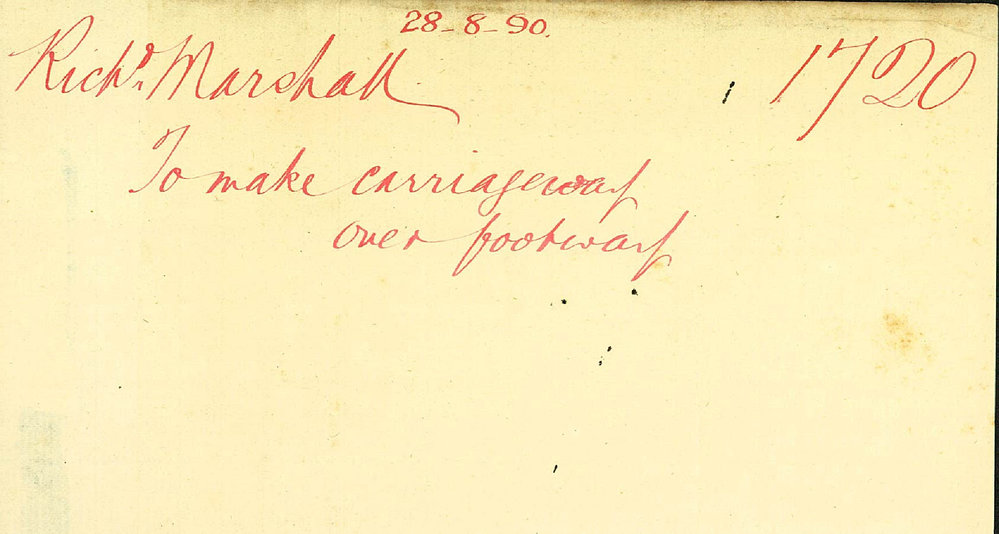 28-8-90.
Richd. Marshall 1720
To make carriageway
over footway